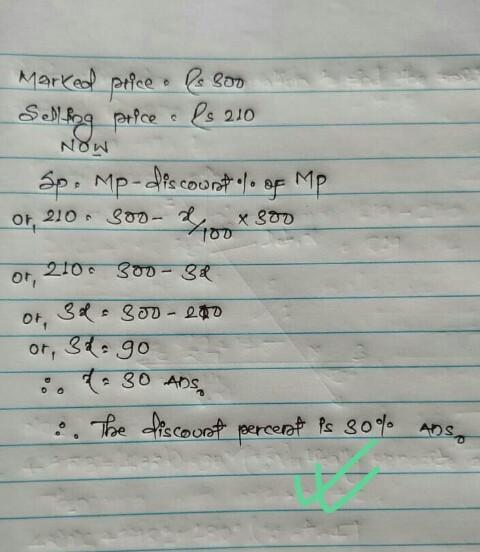 Marked price = Rs 300
Selling price = Rs 210
NOW
Sp = Mp - discount % of Mp
or, 210 = 300 - x/100 × 300
or, 210 = 300 - 3x
or, 3x = 300 - 210
or, 3x = 90
∴ x = 30 ANS.
∴ The discount percent is 30% ANS.